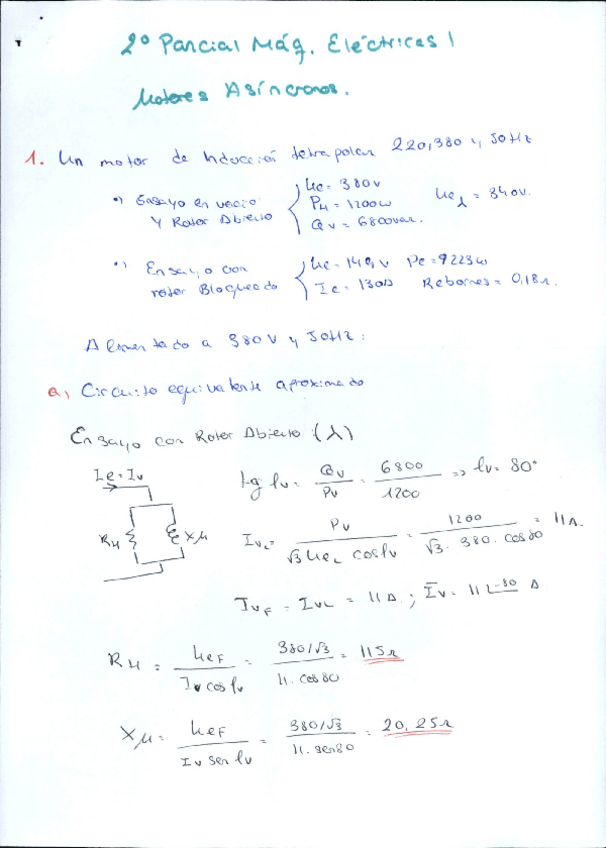 2º Parcial Máq. Eléctricas I
Motores Asíncronos.
1. Un motor de Inducción tetrapolar 220,380 y 50Hz
•) Ensayo en vacío
y Rotor Abierto
Ue = 380V
PH = 1200W
Qv = 6800var.
Ueλ = 340V.
•) Ensayo con
rotor Bloqueado
Pe = 9223W
Ie = 130A Rebornes = 0,18Ω.
Alimentado a 380V y 50Hz:
a) Circuito equivalente aproximado
Ensayo con Rotor Abierto (λ)
Ie = Iv
RH Xμ
tg φv = Qv / Pv = 6800 / 1200 => φv = 80°
IvL = Pv / √3 UeL cosφv = 1200 / √3 · 380 · cos80 = 11A.
IvF = IvL = 11A ; Īv = 11∠-80 A
RH = UeF / Iv cosφv = 380/√3 / 11 · cos80 = 115Ω
Xμ = UeF / Iv senφv = 380/√3 / 11 · sen80 = 20,25Ω